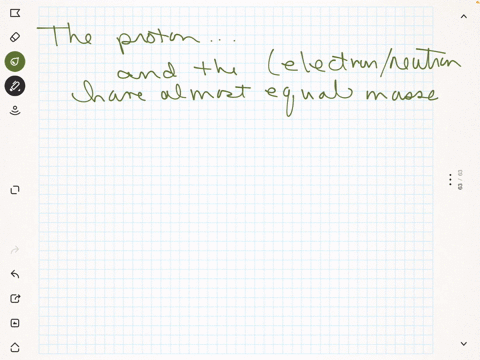 The proton ...
and the (electron/neutron
have almost equal masse
63 / 63